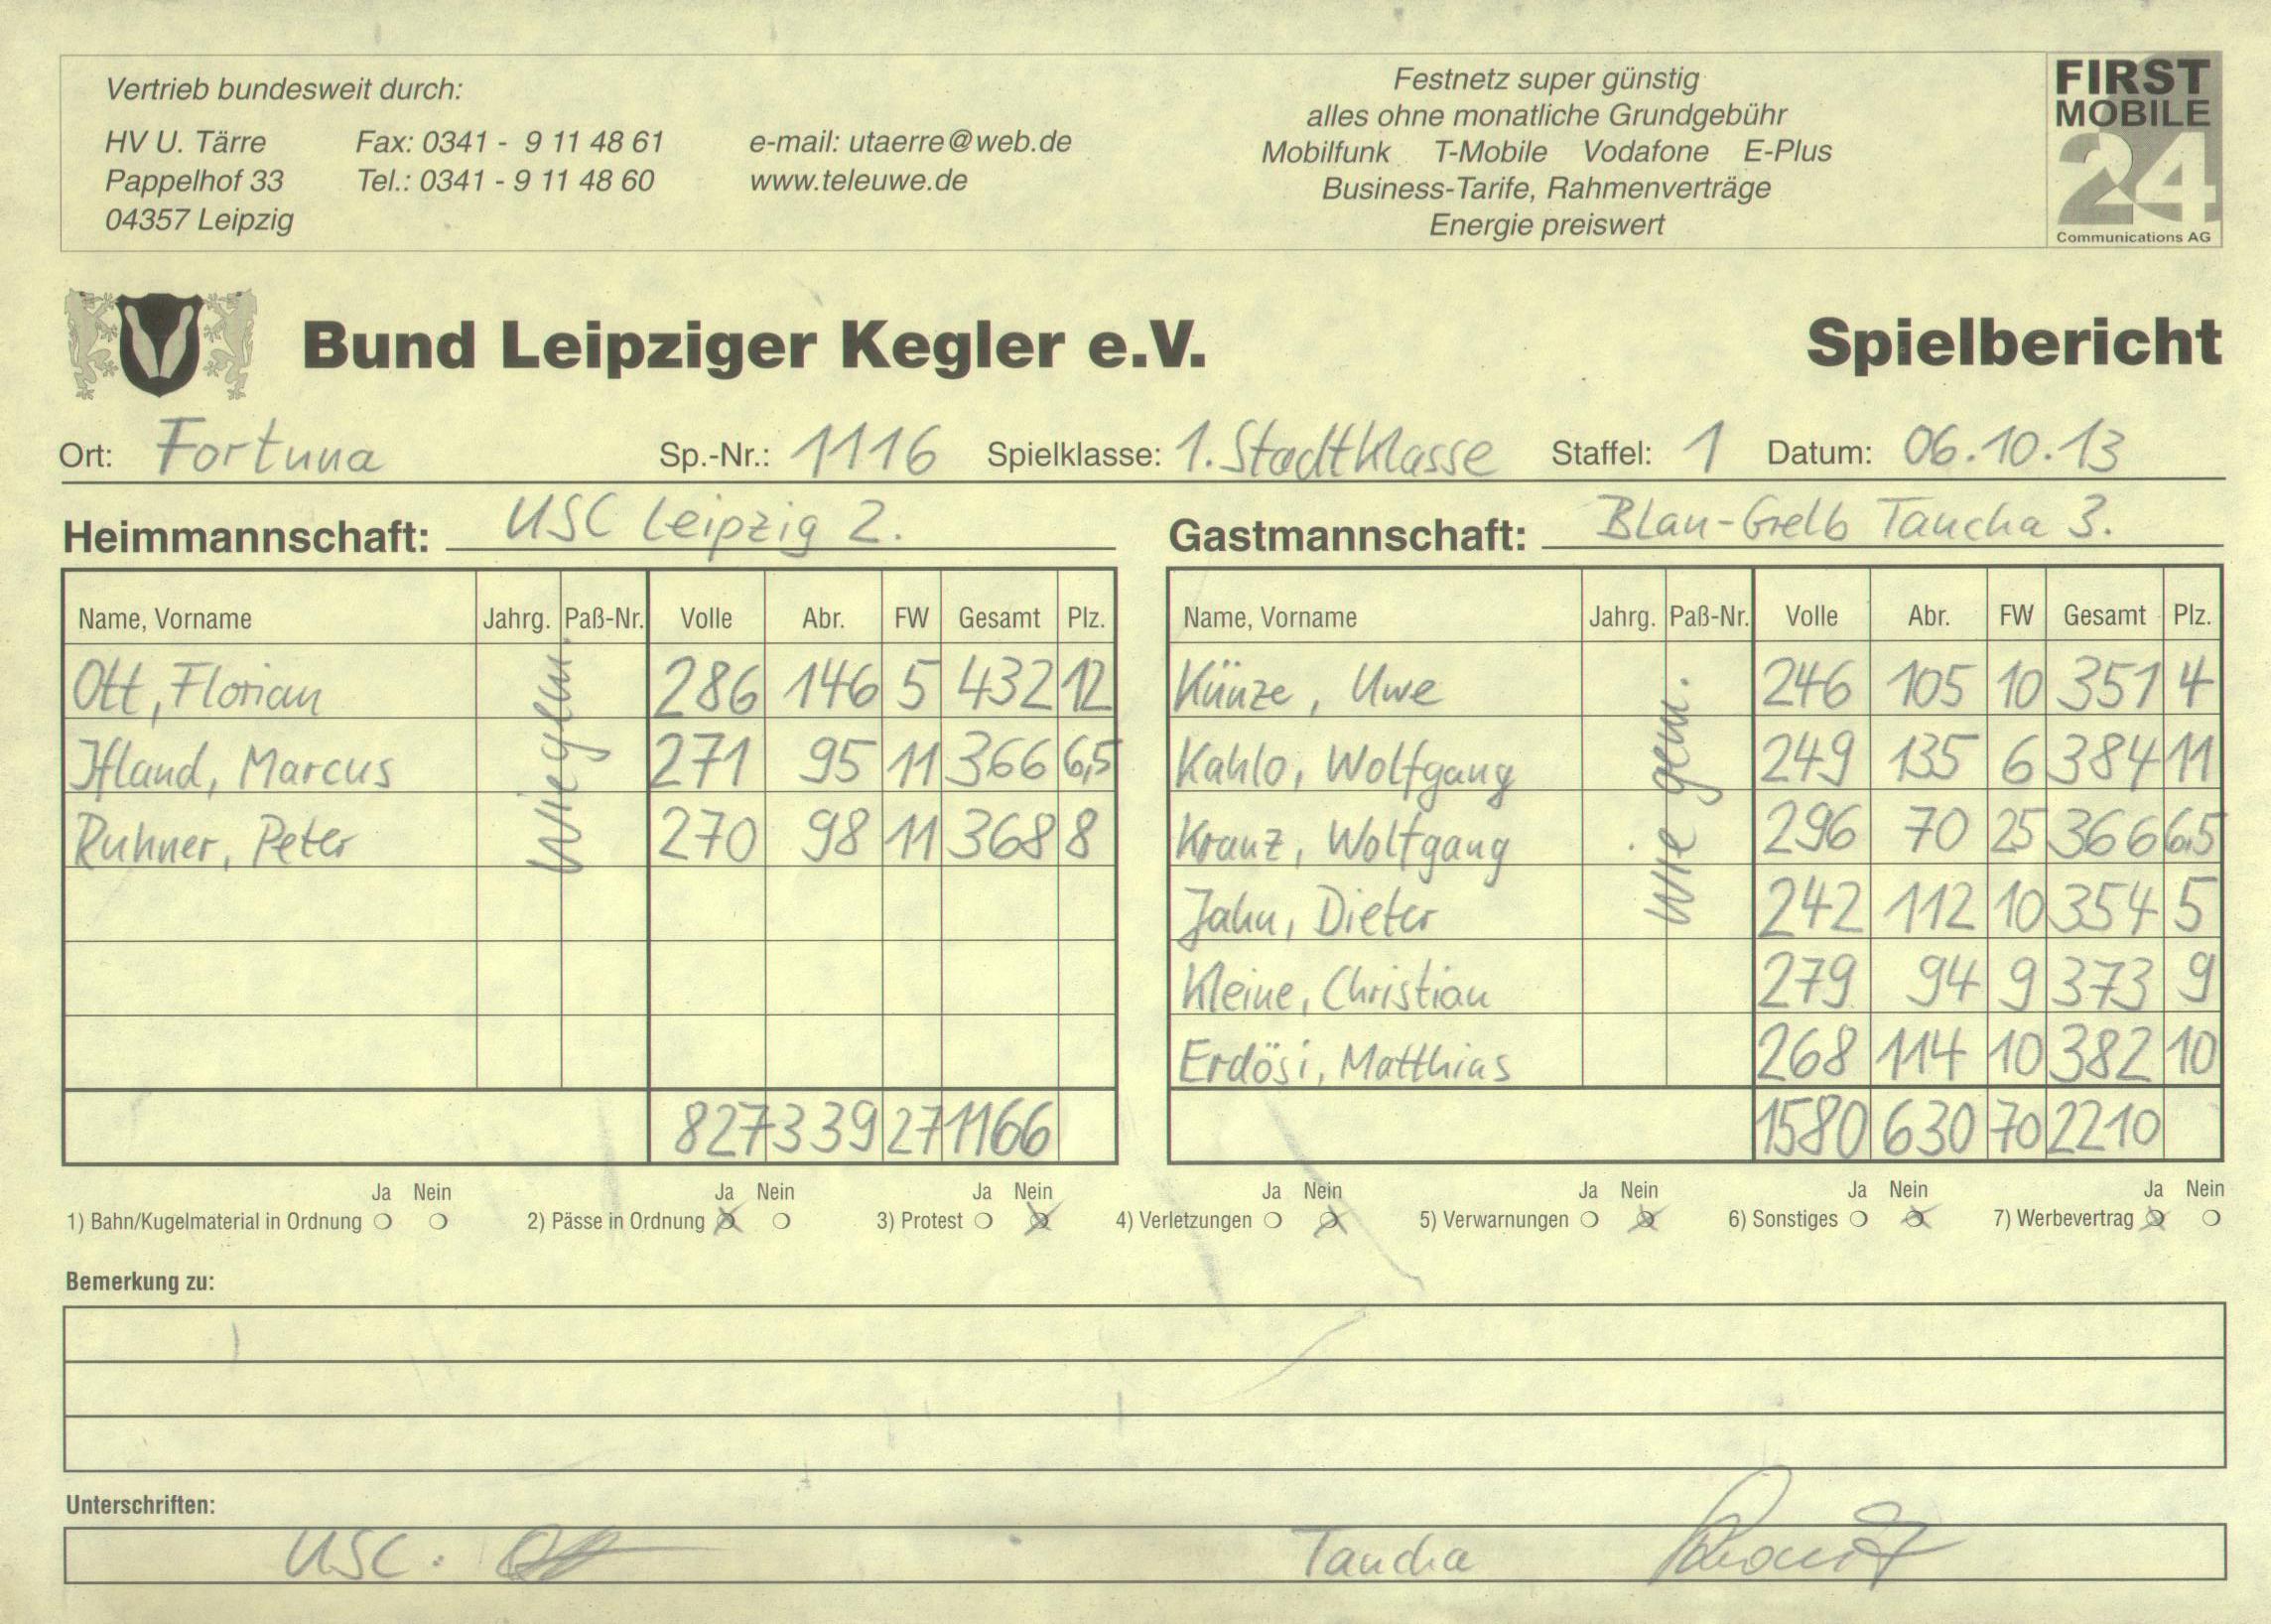 Vertrieb bundesweit durch:
HV U. Tärre Fax: 0341 - 9 11 48 61 e-mail: utaerre@web.de
Pappelhof 33 Tel.: 0341 - 9 11 48 60 www.teleuwe.de
04357 Leipzig
Festnetz super günstig
alles ohne monatliche Grundgebühr
Mobilfunk T-Mobile Vodafone E-Plus
Business-Tarife, Rahmenverträge
Energie preiswert
FIRST
MOBILE
24
Communications AG
Bund Leipziger Kegler e.V. Spielbericht
Ort: Fortuna Sp.-Nr.: 1116 Spielklasse: 1. Stadtklasse Staffel: 1 Datum: 06.10.13
Heimmannschaft: USC Leipzig 2.
Name, Vorname Jahrg. Paß-Nr. Volle Abr. FW Gesamt Plz.
Ott, Florian 286 146 5 432 12
Ifland, Marcus 271 95 11 366 6,5
Ruhner, Peter 270 98 11 368 8
wie gem.
827 339 27 1166
Gastmannschaft: Blau-Gelb Taucha 3.
Name, Vorname Jahrg. Paß-Nr. Volle Abr. FW Gesamt Plz.
Künze, Uwe 246 105 10 351 4
Kahlo, Wolfgang 249 135 6 384 11
Kranz, Wolfgang 296 70 25 366 6,5
Jahn, Dieter 242 112 10 354 5
Kleine, Christian 279 94 9 373 9
Erdösi, Matthias 268 114 10 382 10
wie gem.
1580 630 70 2210
Ja Nein Ja Nein Ja Nein Ja Nein Ja Nein Ja Nein Ja Nein
1) Bahn/Kugelmaterial in Ordnung 2) Pässe in Ordnung 3) Protest 4) Verletzungen 5) Verwarnungen 6) Sonstiges 7) Werbevertrag
Bemerkung zu:
Unterschriften:
USC. Taucha